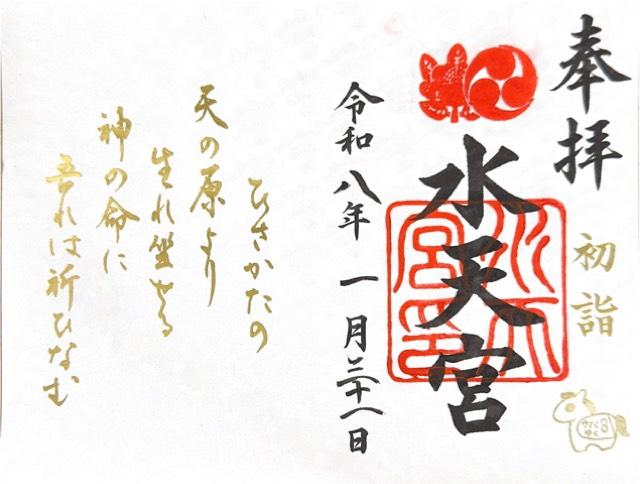 奉拝
初詣
水天宮
令和八年 一月三十一日
ひさかたの
天の原より
生れ坐せる
神の命に
吾れは祈ひなむ